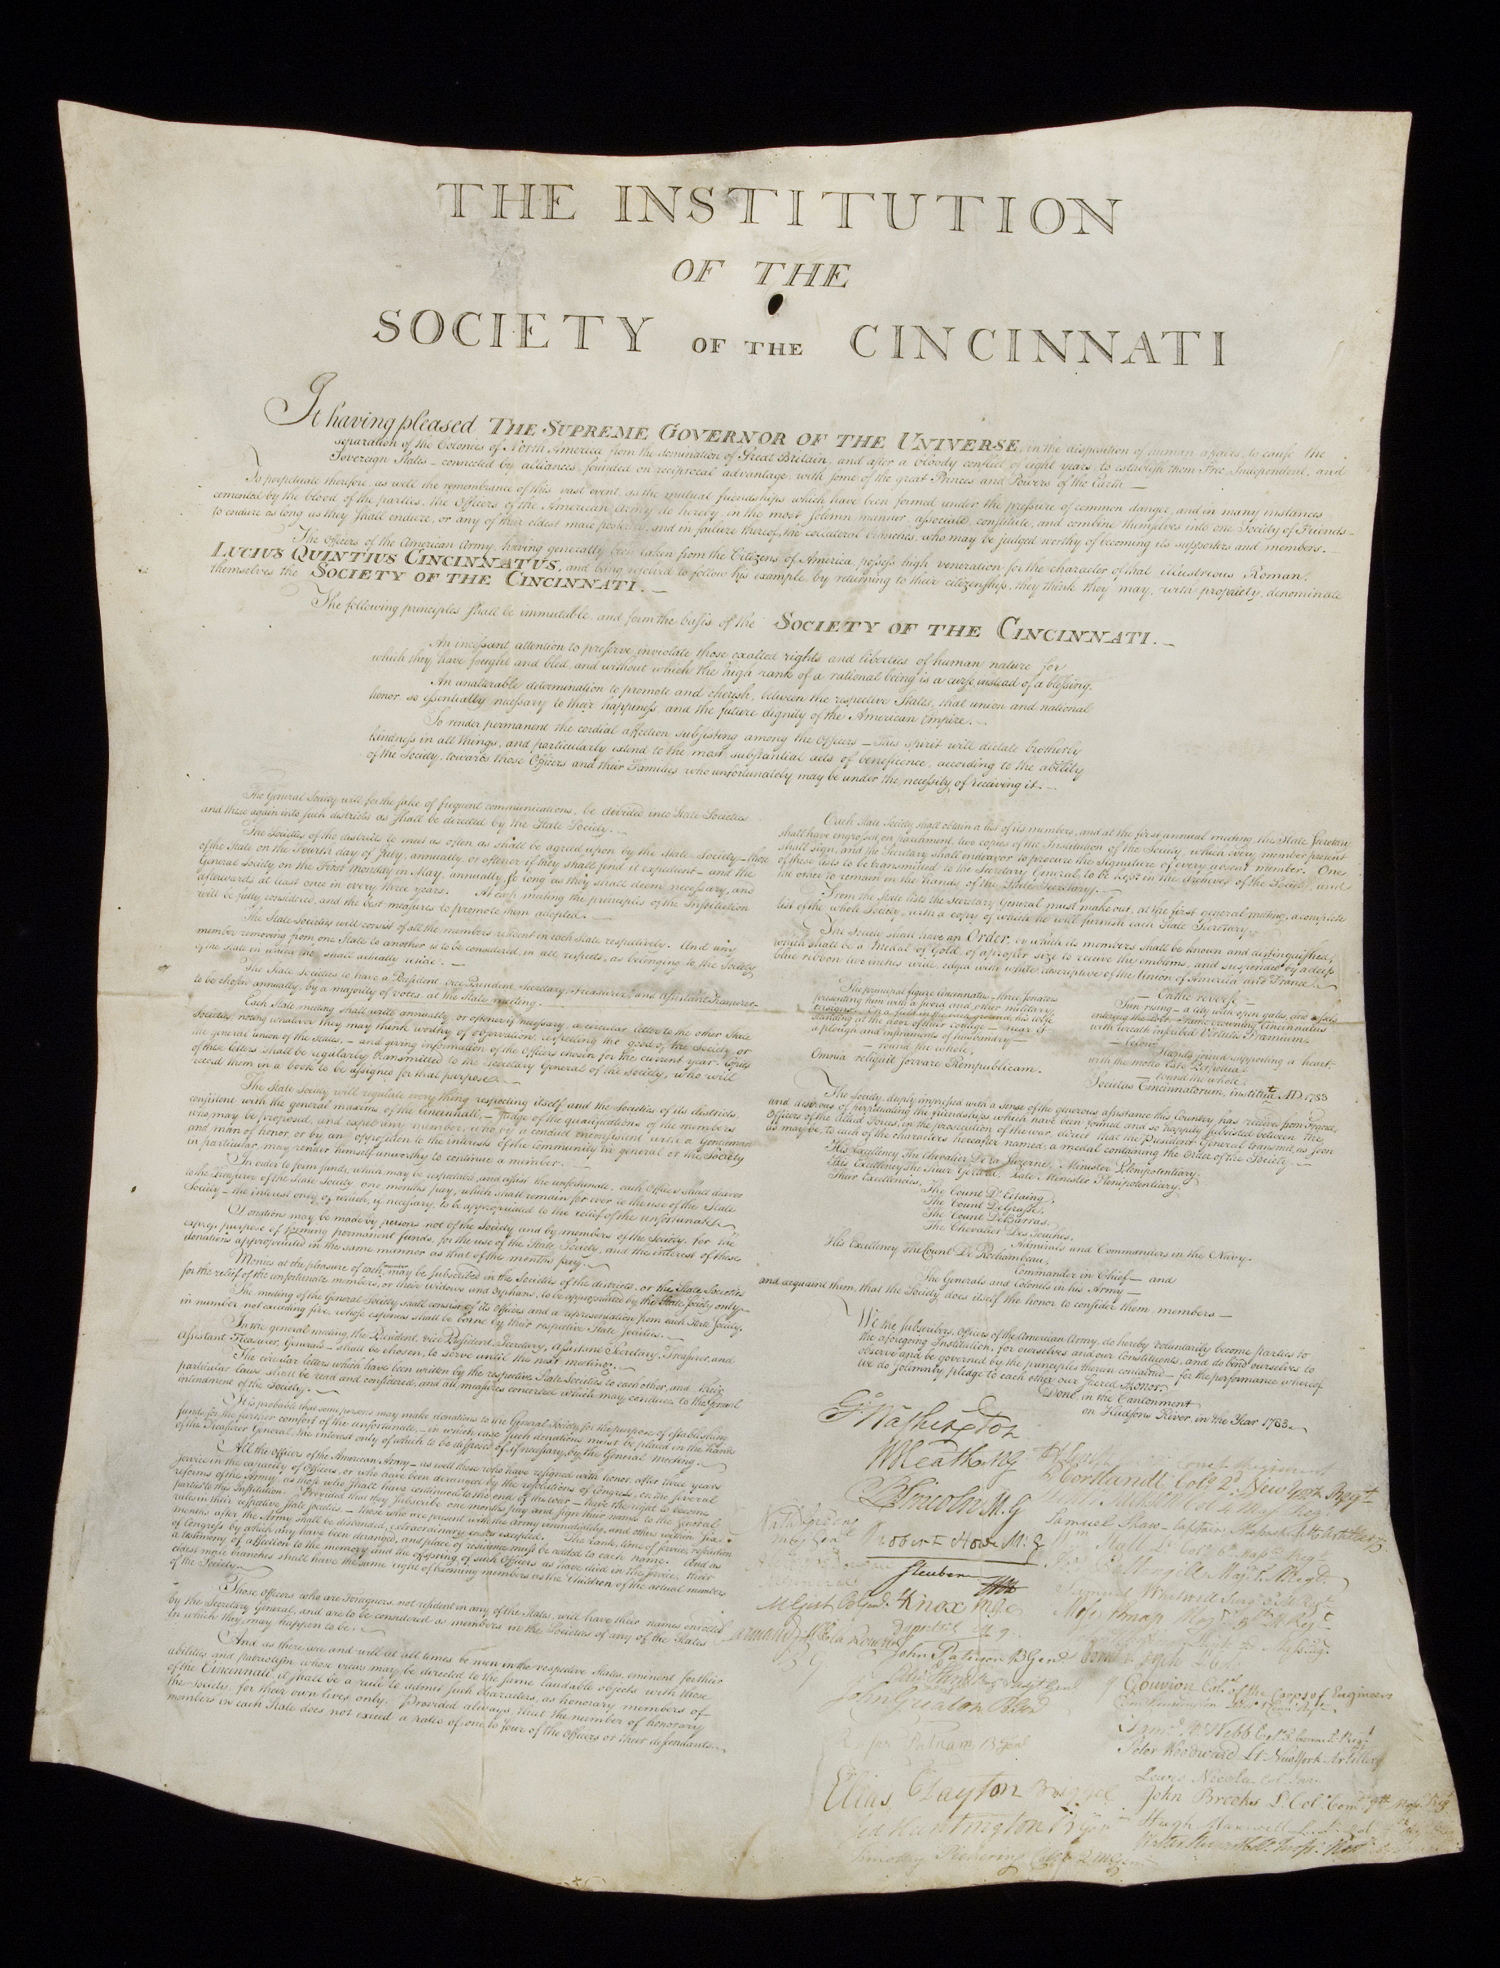 THE INSTITUTION
OF THE
SOCIETY OF THE CINCINNATI
It having pleased THE SUPREME GOVERNOR OF THE UNIVERSE, in the disposition of human affairs, to cause the
separation of the Colonies of North America from the domination of Great Britain, and after a bloody conflict of eight years, to establish them Free, Independent, and
Sovereign States – connected by alliances, founded on reciprocal advantage, with some of the great Princes and Powers of the Earth —
To perpetuate therefore, as well the remembrance of this vast event, as the mutual friendships which have been formed under the pressure of common danger, and in many instances
cemented by the blood of the parties, the Officers of the American Army do hereby, in the most solemn manner, associate, constitute, and combine themselves into one Society of Friends –
to endure as long as they shall endure, or any of their eldest male posterity, and in failure thereof, the collateral branches, who may be judged worthy of becoming its supporters and members. –
The Officers of the American Army, having generally been taken from the Citizens of America, possess high veneration for the character of that illustrious Roman,
LUCIUS QUINTIUS CINCINNATUS, and being resolved to follow his example, by returning to their citizenship, they think they may, with propriety, denominate
themselves the SOCIETY OF THE CINCINNATI. —
The following principles shall be immutable, and form the basis of the SOCIETY OF THE CINCINNATI. —
An incessant attention to preserve inviolate those exalted rights and liberties of human nature for
which they have fought and bled, and without which the high rank of a rational being is a curse instead of a blessing.
An unalterable determination to promote and cherish, between the respective States, that union and national
honor, so essentially necessary to their happiness, and the future dignity of the American Empire. —
To render permanent the cordial affection subsisting among the Officers – This spirit will dictate brotherly
kindness in all things, and particularly extend to the most substantial acts of beneficence, according to the ability
of the Society, towards those Officers and their Families who unfortunately may be under the necessity of receiving it. —
The General Society will, for the sake of frequent communications, be divided into State Societies
and these again into such districts as shall be directed by the State Society. —
The Societies of the districts to meet as often as shall be agreed upon by the State Society – those
of the State on the Fourth day of July, annually, or oftener if they shall find it expedient – and the
General Society on the First Monday in May, annually, so long as they shall deem necessary, and
afterwards at least once in every three years. At each meeting the principles of the Institution
will be fully considered, and the best measures to promote them adopted. —
The State Societies will consist of all the members resident in each State respectively. And any
member removing from one State to another is to be considered, in all respects, as belonging to the Society
of the State in which he shall actually reside. —
The State Societies to have a President, Vice President, Secretary, Treasurer, and assistant Treasurer –
to be chosen annually, by a majority of votes, at the State meeting.
Each State meeting shall write annually, or oftener if necessary, a circular letter to the other State
Societies, noting whatever they may think worthy of observation, respecting the good of the Society or
the general union of the States, – and giving information of the Officers chosen for the current year. Copies
of these letters shall be regularly transmitted to the Secretary General of the Society, who will
record them in a book to be assigned for that purpose. —
The State Society will regulate every thing respecting itself, and the Societies of its districts,
consistent with the general maxims of the Cincinnati, – judge of the qualifications of the members
who may be proposed, and expel any member, who by a conduct inconsistent with a Gentleman
and man of honor, or by an opposition to the interests of the community in general or the Society
in particular, may render himself unworthy to continue a member. —
In order to form funds, which may be respectable, and assist the unfortunate, each Officer shall deliver
to the Treasurer of the State Society one months pay, which shall remain for ever to the use of the State
Society – the interest only of which, if necessary, to be appropriated to the relief of the unfortunate. —
Donations may be made by persons not of the Society and by members of the Society, for the
express purpose of forming permanent funds, for the use of the State Society, and the interest of these
donations appropriated in the same manner as that of the months pay. —
Monies at the pleasure of each member may be subscribed in the Societies of the districts, or the State Societies
for the relief of the unfortunate members, or their widows and orphans, to be appropriated by the State Society only.
The meeting of the General Society shall consist of its Officers and a representation from each State Society,
in number not exceeding five, whose expenses shall be borne by their respective State Societies. —
In the general meeting, the President, Vice President, Secretary, Assistant Secretary, Treasurer, and
Assistant Treasurer, Generals – shall be chosen, to serve until the next meeting. —
The circular letters which have been written by the respective State Societies to each other, and their
particular laws, shall be read and considered, and all measures concerted which may conduce to the general
intendment of the Society. —
It is probable that some persons may make donations to the General Society, for the purpose of establishing
funds, for the farther comfort of the unfortunate, – in which case such donations must be placed in the hands
of the Treasurer General, the interest only of which to be disposed of, if necessary, by the General meeting. —
All the officers of the American Army – as well those who have resigned with honor, after three years
service in the capacity of Officers, or who have been deranged by the resolutions of Congress, on the several
reforms of the Army, as those who shall have continued to the end of the war – have the right to become
parties to this Institution. Provided that they subscribe one months pay, and sign their names to the general
rules in their respective State Societies – those who are present with the Army immediately, and others within Six
months after the Army shall be disbanded, extraordinary cases excepted. The rank, time of service, resolution
of Congress by which any have been deranged, and place of residence must be added to each name. And as
a testimony of affection to the memory and the offspring of such Officers as have died in the Service, their
eldest male branches shall have the same right of becoming members as the Children of the actual members
of the Society. —
Those officers who are Foreigners, not resident in any of the States, will have their names enrolled
by the Secretary General, and are to be considered as members in the Societies of any of the States
in which they may happen to be. —
And as there are and will at all times be men in the respective States, eminent for their
abilities and patriotism whose views may be directed to the same laudable objects with those
of the Cincinnati, it shall be a rule to admit such characters, as honorary members of
the Society, for their own lives only. Provided always, that the number of honorary
members in each State does not exceed a ratio of one to four of the Officers or their descendants. —
Each State Society shall obtain a list of its members, and at the first annual meeting, the State Secretary
shall have engrossed, on parchment, two copies of the Institution of the Society, which every member present
shall sign, and the Secretary shall endeavor to procure the Signature of every absent member. One
of these lists to be transmitted to the Secretary General, to be kept in the archives of the Society, and
the other to remain in the hands of the State Secretary. —
From the State lists the Secretary General must make out, at the first general meeting, a complete
list of the whole Society, with a copy of which he will furnish each State Secretary.
The Society shall have an Order, by which its members shall be known and distinguished,
which shall be a Medal of Gold, of a proper size to receive the emblems, and suspended by a deep
blue ribbon two inches wide, edged with white, descriptive of the Union of America and France. —
The principal figure Cincinnatus – three Senators
presenting him with a sword and other military
ensigns – on a field in the back ground, his wife
standing at the door of their cottage – near it
a plough and instruments of husbandry –
– round the whole,
Omnia reliquit servare Rempublicam.
– On the reverse –
Sun rising – a city with open gates, and vessels
entering the Port – Fame crowning Cincinnatus
with wreath inscribed Virtutis Præmium.
– below –
Hands joined supporting a heart –
with the motto Esto Perpetua.
– Round the whole,
Societas Cincinnatorum, instituta AD. 1783
The Society deeply impressed with a sense of the generous assistance this Country has received from France,
and desirous of perpetuating the friendships which have been formed and so happily subsisted between the
Officers of the Allied Forces, in the prosecution of the war, direct that the President General transmit, as soon
as may be, to each of the characters hereafter named, a medal containing the Order of the Society. —
His Excellency The Chevalier De la Luzerne, Minister Plenipotentiary,
His Excellency the Sieur Gerard, Late Minister Plenipotentiary
Their Excellencies,
The Count D'Estaing,
The Count DeGrasse,
The Count DeBarras,
The Chevalier Des Touches,
Admirals and Commanders in the Navy.
His Excellency The Count De Rochambeau,
Commander in Chief – and
The Generals and Colonels in his Army –
and acquaint them, that the Society does itself the honor to consider them members –
We the subscribers, Officers of the American Army, do hereby voluntarily become parties to
the aforegoing Institution, for ourselves and our constituents, and do bind ourselves to
observe and be governed by the principles therein contained – for the performance whereof
we do solemnly pledge to each other our Sacred Honor.
Done in the Cantonment
on Hudsons River, in the Year 1783.
Go Washington
W Heath MG
B Lincoln M. G
Robert Howe M. G
Steuben
H Knox MG
John Paterson B Gen
John Greaton BGen
Rufus Putnam B Genl
Elias Dayton
Jed Huntington
Timothy Pickering
Cortlandt Colo 2d New York Regt
Samuel Shaw – Captain
Samuel Whitwell Surg
Gouvion Colo of the Corps of Engineers
Peter Woodward Lt New York Artillery
Lewis Nicola Col. Inv.
John Brooks Lt Col
Hugh Maxwell